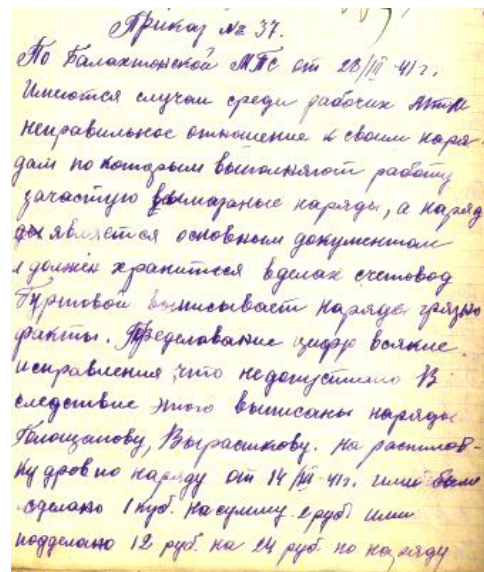 Приказ № 37.
По Балахтонской МТС от 28/III 41 г.
Имеются случаи среди рабочих
неправильное отношение к своим наря-
дам по которым выполняют работу
зачастую вымараные наряды, а наряд
является основным документом
и должен хранится в делах счетовод
Буртовой выписывает наряды грязно
факты. Переделавание цифр всякие
исправления что недопустимо В
следствие этого выписаны наряды
Вырасикову. На распилов-
ку дров по наряду от 14/III 41 г. ими было
сделано 1 куб. на сумму 2 руб ими
подделано 12 руб. на 24 руб. по наряду